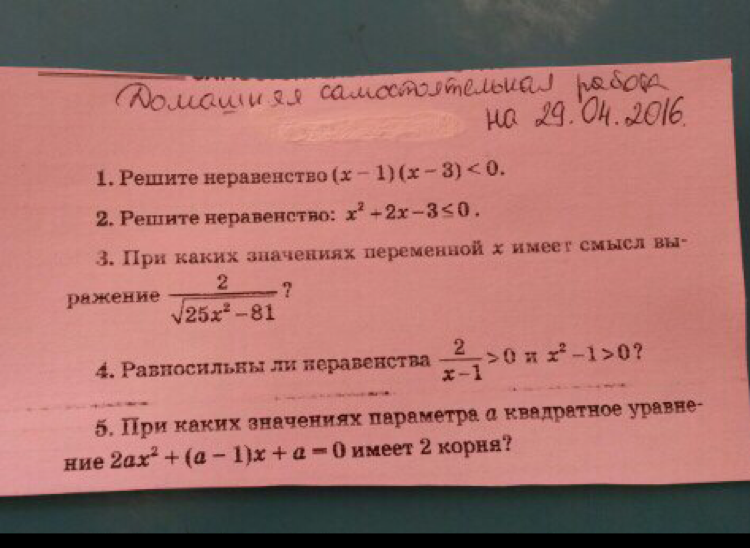 Домашняя самостоятельная работа
на 29.04.2016.
1. Решите неравенство (x − 1)(x − 3) < 0.
2. Решите неравенство: x² + 2x − 3 ≤ 0.
3. При каких значениях переменной x имеет смысл вы-
ражение 2/√(25x² − 81) ?
4. Равносильны ли неравенства 2/(x−1) > 0 и x² − 1 > 0?
5. При каких значениях параметра a квадратное уравне-
ние 2ax² + (a − 1)x + a = 0 имеет 2 корня?